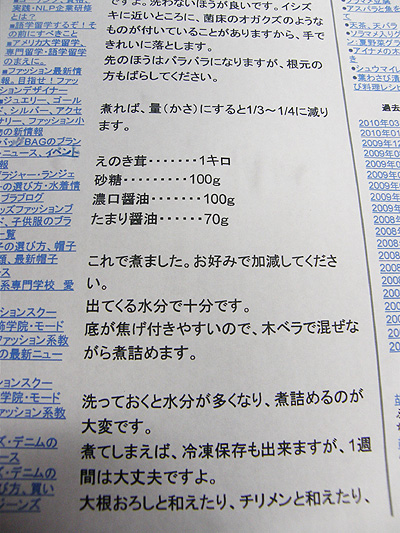 ですよ。洗わないほうが良いです。イシズ
キに近いところに、菌床のオガクズのような
ものが付いていることがありますから、手で
きれいに落とします。
先のほうはバラバラになりますが、根元の
方もばらしてください。
煮れば、量（かさ）にすると1/3～1/4に減り
ます。
えのき茸・・・・・・・1キロ
砂糖・・・・・・・・・100g
濃口醤油・・・・・・・100g
たまり醤油・・・・・・70g
これで煮ました。お好みで加減してくださ
い。
出てくる水分で十分です。
底が焦げ付きやすいので、木ベラで混ぜな
がら煮詰めます。
洗っておくと水分が多くなり、煮詰めるのが
大変です。
煮てしまえば、冷凍保存も出来ますが、1週
間は大丈夫ですよ。
大根おろしと和えたり、チリメンと和えたり、
実践・NLP企業研修
とは？
■語学留学するぞ！そ
の前にすべきこと
■アメリカ大学留学、
専門留学・語学留学
のまえに。
■ファッション最新情
報。目指せ！ファッ
ションデザイナー
■ジュエリー、ゴール
ド、シルバー、アクセ
サリー、ファッション小
物の新情報
バッグBAGのブラン
ド・ニュース、イベント
情報
ブラジャー・ランジェ
リーの選び方・水着情
ブラブログ
ッズファッションブ
ド、子供服のブラ
一覧
子の選び方、帽子
顔、最新帽子
ース
系専門学校　愛
ションスクー
飾学院・モード
ファッション系教
の最新ニュー
ションスクー
学院・モード
ァッション系教
ズ・デニムの
ズ・デニムの
び方、買い
ジーンズ
■ソラマメ豆腐
■アスパラと魚を
て
■天茶、天バラ
■ソラマメ入りグ
ン：夏野菜グラ
■アイナメの木の
き
■シュウマイレ
■葉わさび漬
び料理レシピ
2010年03
2010年01
2009年12
2009年
2009年
2009年
2009年
2009年
2009年
2008年
2008年
2008年
2008
2008
2008